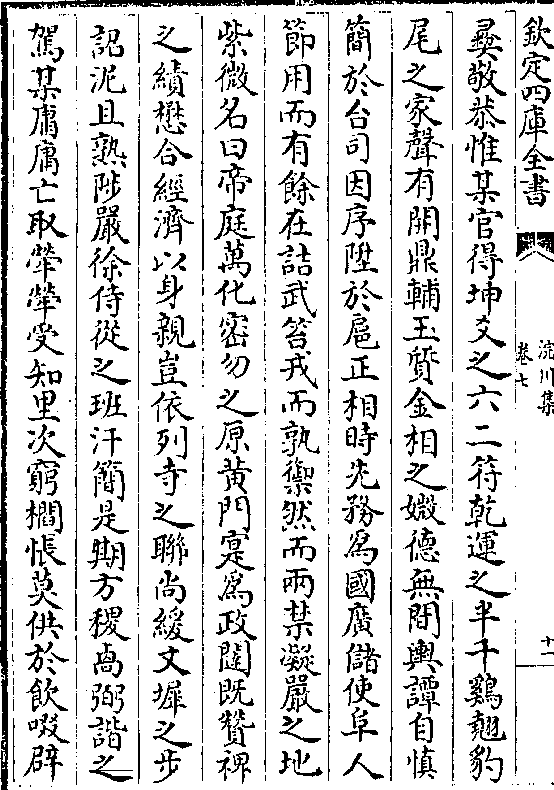 欽定四庫全書
浣川集
卷七
十一
彛敬恭惟某官得坤爻之六二符乾運之半千鷄翹豹
尾之家聲有開鼎輔玉質金相之媺德無間輿譚自慎
簡於台司因序陞於扈正相時先務為國廣儲使阜人
節用而有餘在詰武笞戎而孰禦然而兩禁凝嚴之地
紫微名曰帝庭萬化密勿之原黄門寔為政闥既贊禆
之績懋合經濟以身親豈依列寺之聯尚緩文墀之步
詔泥且熟陟嚴徐侍從之班汗簡是期方稷卨弼諧之
駕某庸庸亡取犖犖受知里次窮櫩悵莫供於飲啜辟